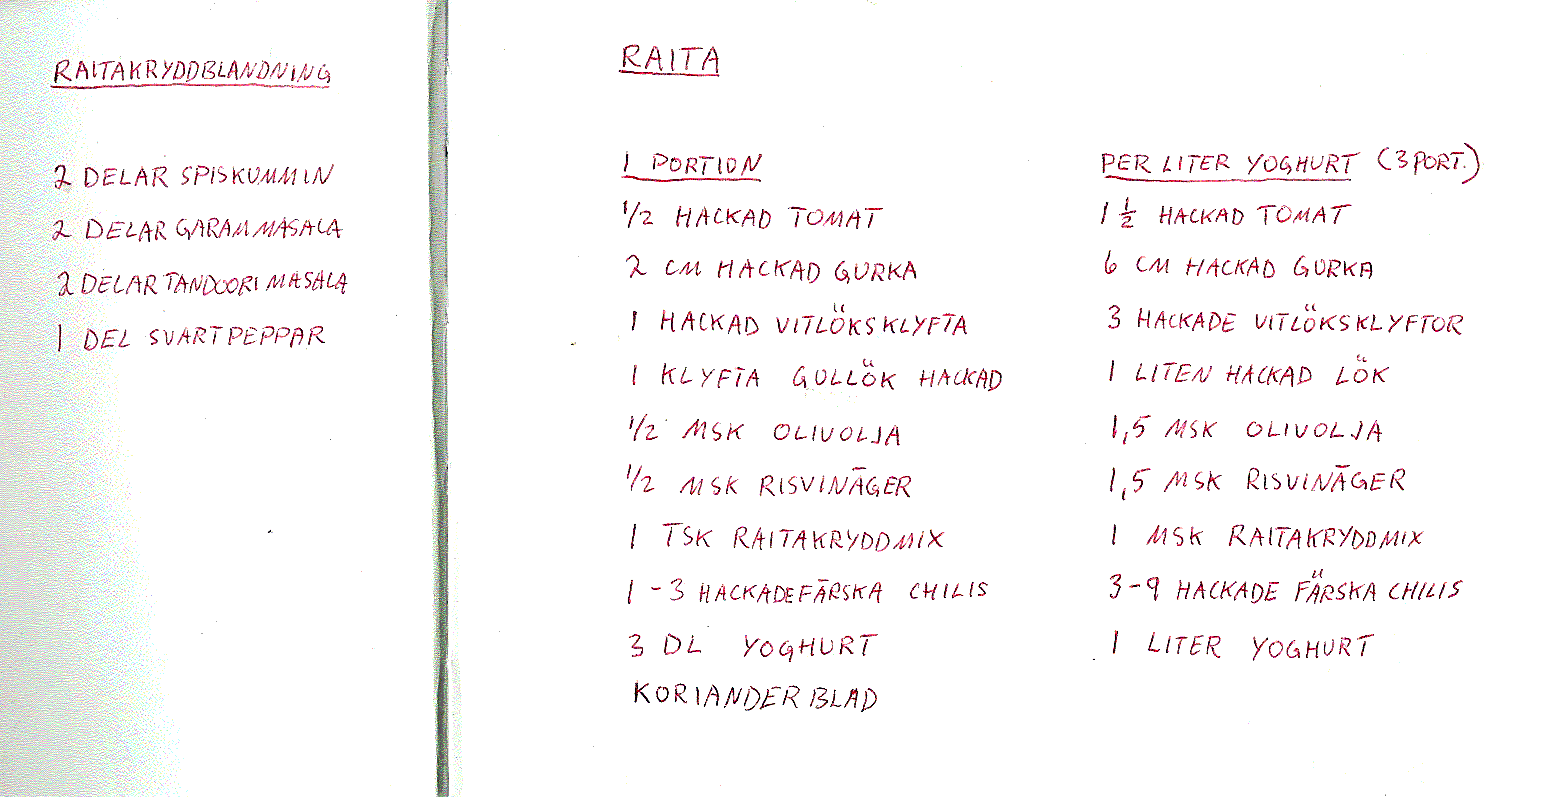 RAITAKRYDDBLANDNING
2 DELAR SPISKUMMIN
2 DELAR GARAM MASALA
2 DELAR TANDOORI MASALA
1 DEL SVARTPEPPAR
RAITA
1 PORTION
1/2 HACKAD TOMAT
2 CM HACKAD GURKA
1 HACKAD VITLÖKSKLYFTA
1 KLYFTA GULLÖK HACKAD
1/2 MSK OLIVOLJA
1/2 MSK RISVINÄGER
1 TSK RAITAKRYDDMIX
1-3 HACKADE FÄRSKA CHILIS
3 DL YOGHURT
KORIANDERBLAD
PER LITER YOGHURT (3 PORT.)
1 1/2 HACKAD TOMAT
6 CM HACKAD GURKA
3 HACKADE VITLÖKSKLYFTOR
1 LITEN HACKAD LÖK
1,5 MSK OLIVOLJA
1,5 MSK RISVINÄGER
1 MSK RAITAKRYDDMIX
3-9 HACKADE FÄRSKA CHILIS
1 LITER YOGHURT